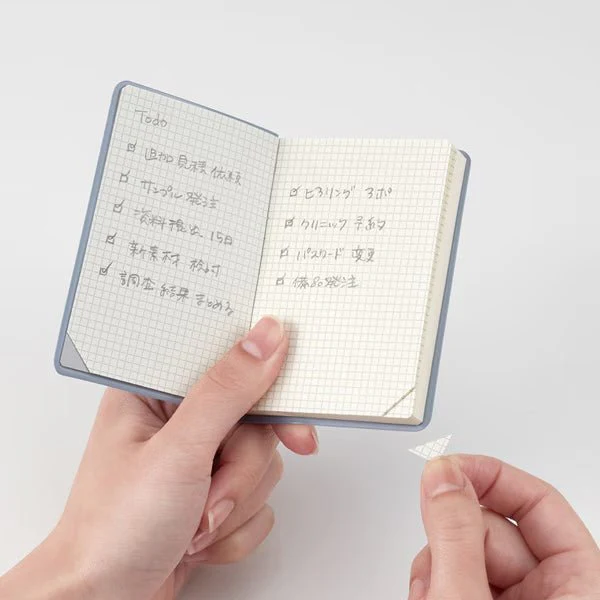 Todo
☑ 追加見積依頼
☑ サンプル発注
☑ 資料提出 15日
☑ 新素材 検討
☑ 調査結果まとめる
☑ ヒアリング ラボ
☑ クリニック予約
☑ パスワード 変更
☑ 備品発注